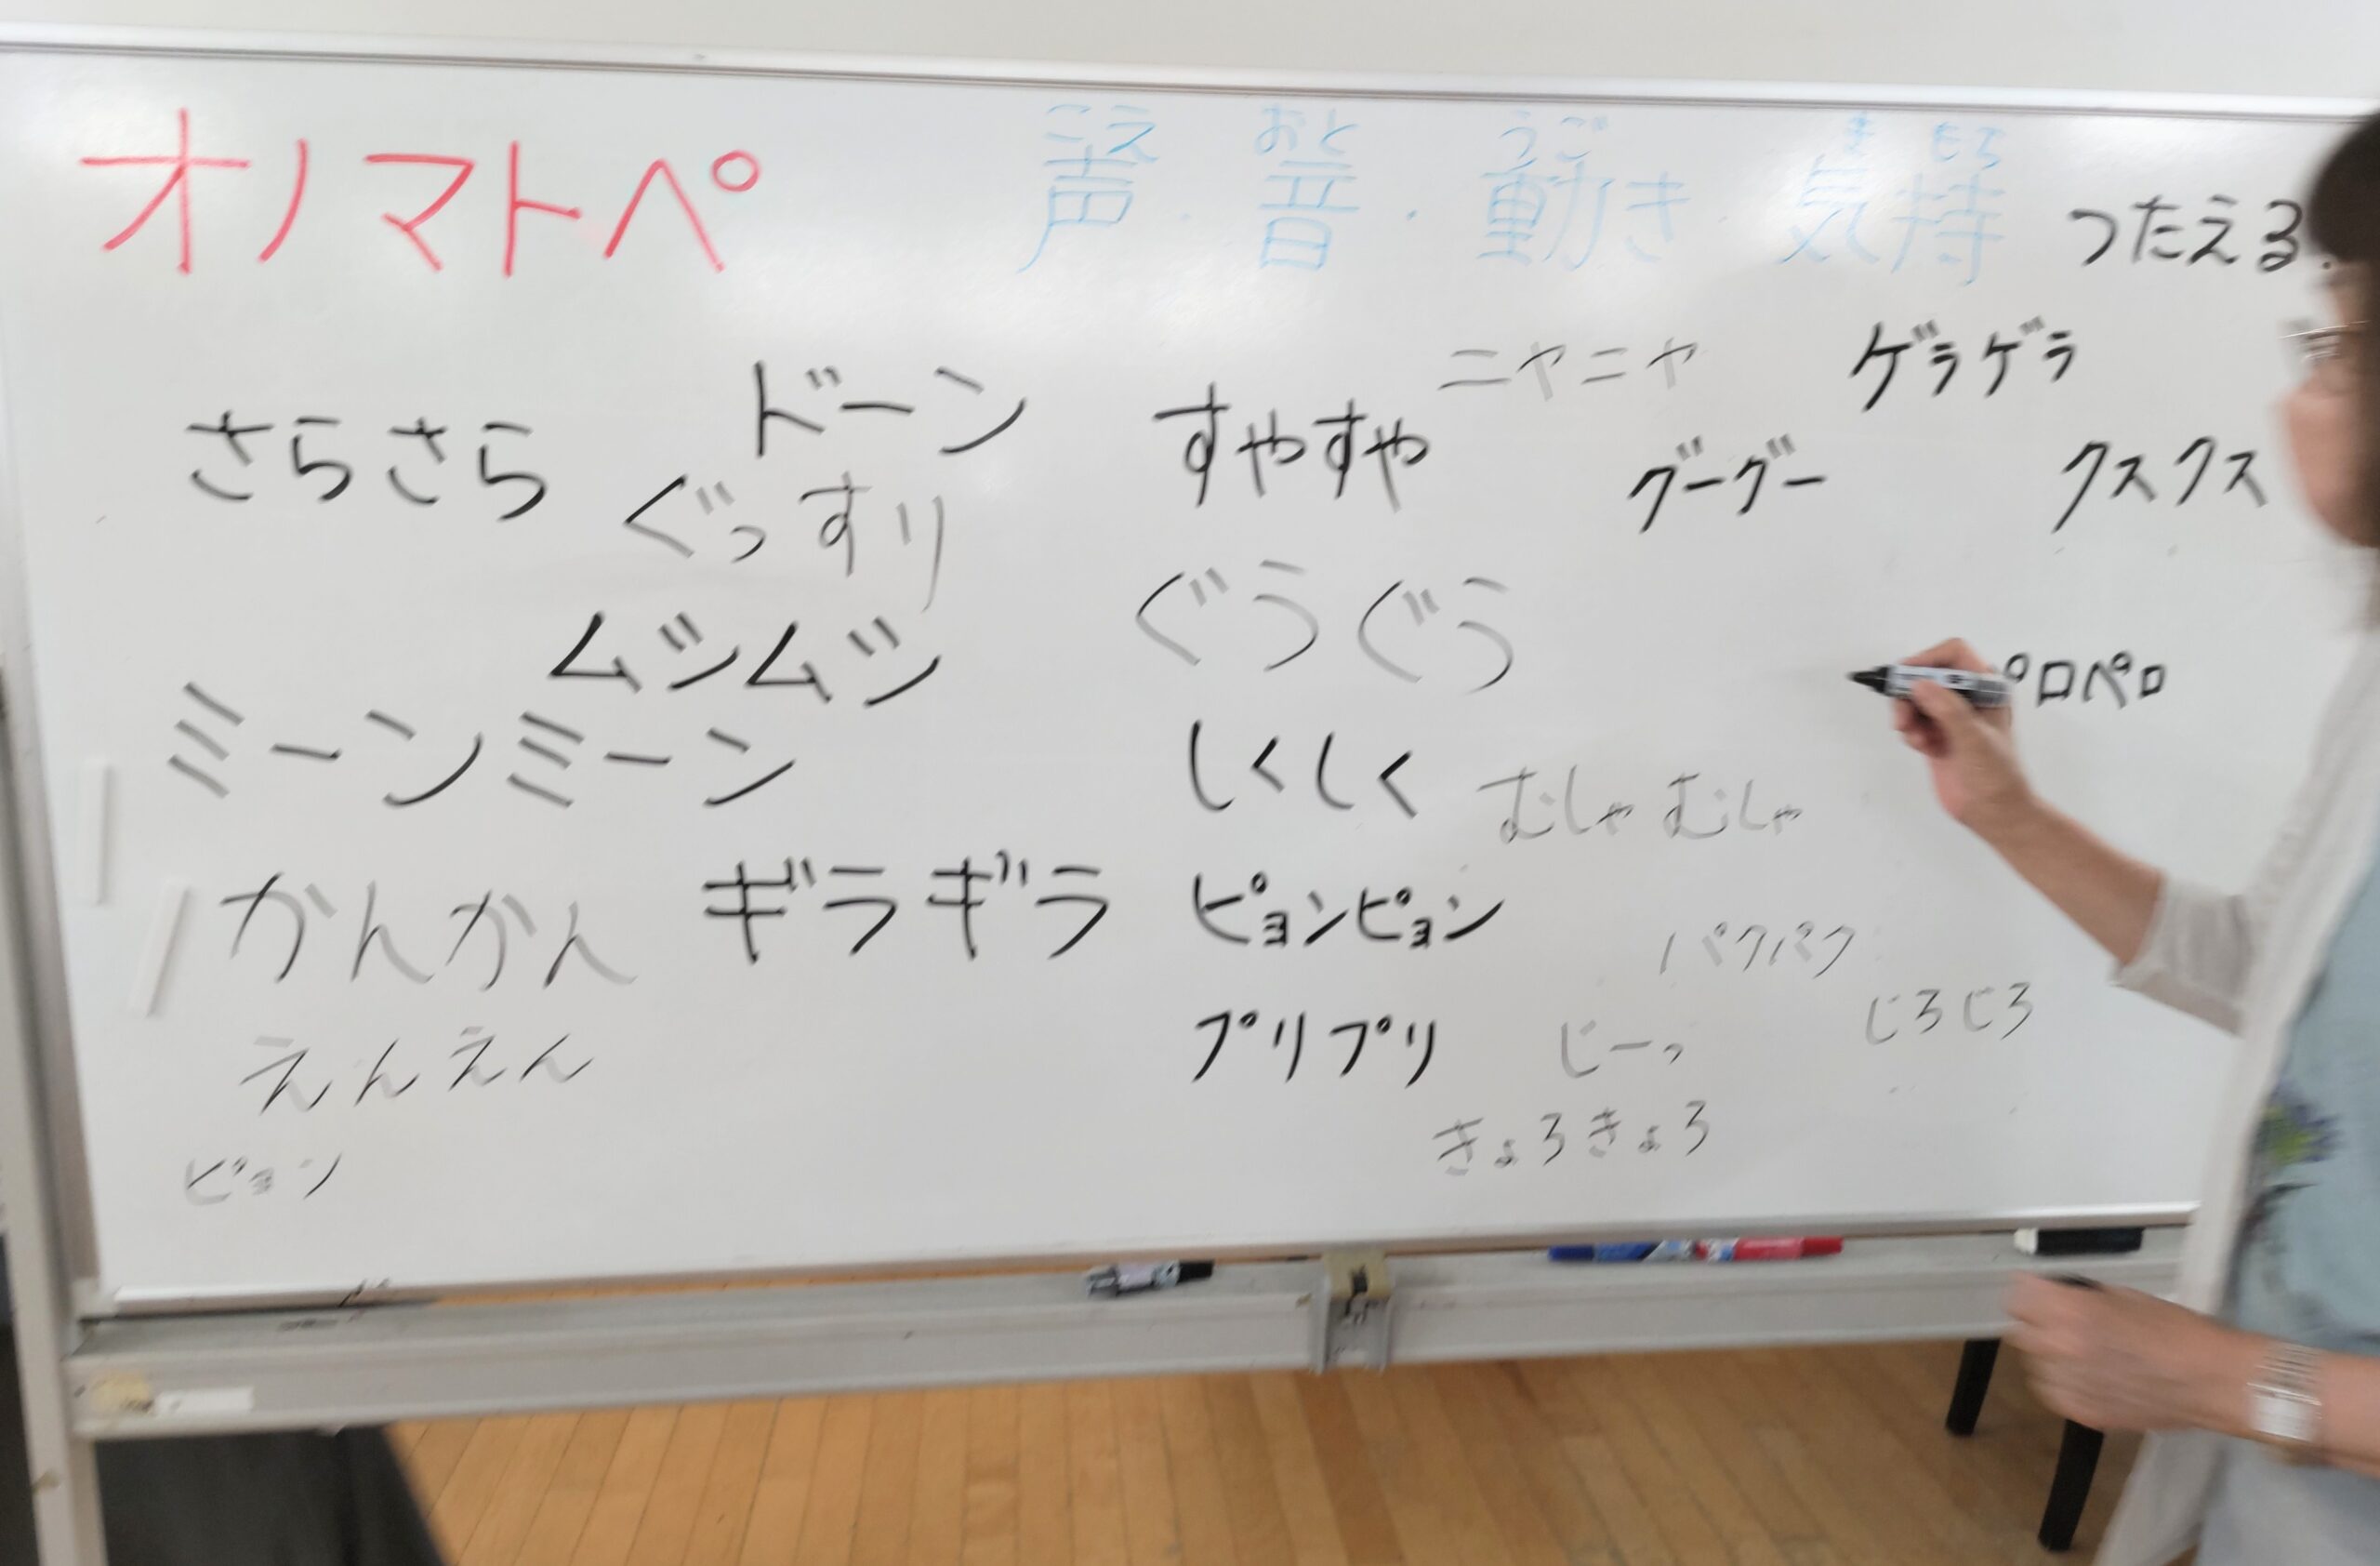 オノマトペ
こえ おと うご き もち
声・音・動き・気持 つたえる.
ドーン
ニヤニヤ
ゲラゲラ
さらさら
すやすや
グーグー
クスクス
ぐっすり
ぐうぐう
ムシムシ
ペロペロ
ミーンミーン
しくしく
むしゃむしゃ
かんかん
ギラギラ
ピョンピョン
パクパク
じろじろ
えんえん
プリプリ
じーっ
きょろきょろ
ピョン